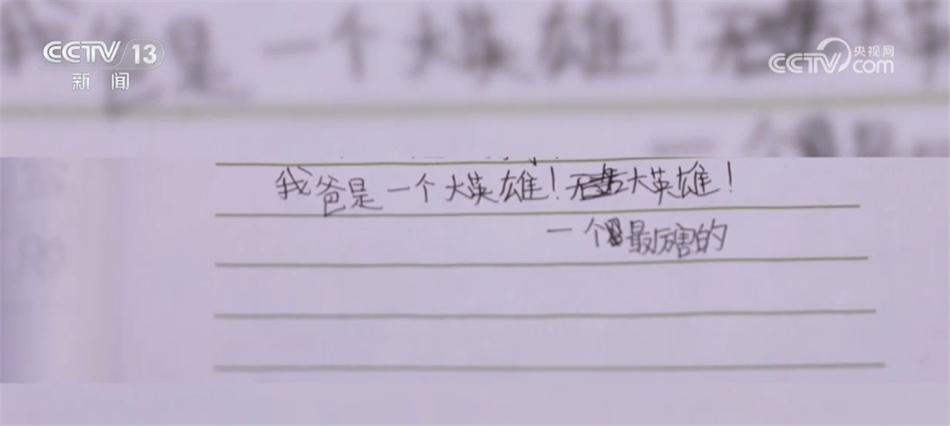 CCTV 13
新闻
央视网
CCTV.com
是一个大英雄!
我爸是一个大英雄!大英雄!
一个最厉害的